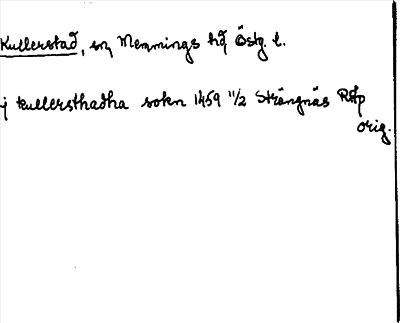 Kullerstad, sn, Memmings hd Östg. l.
j kullersthadha sokn 1459 11/2 Strängnäs RAp
orig.